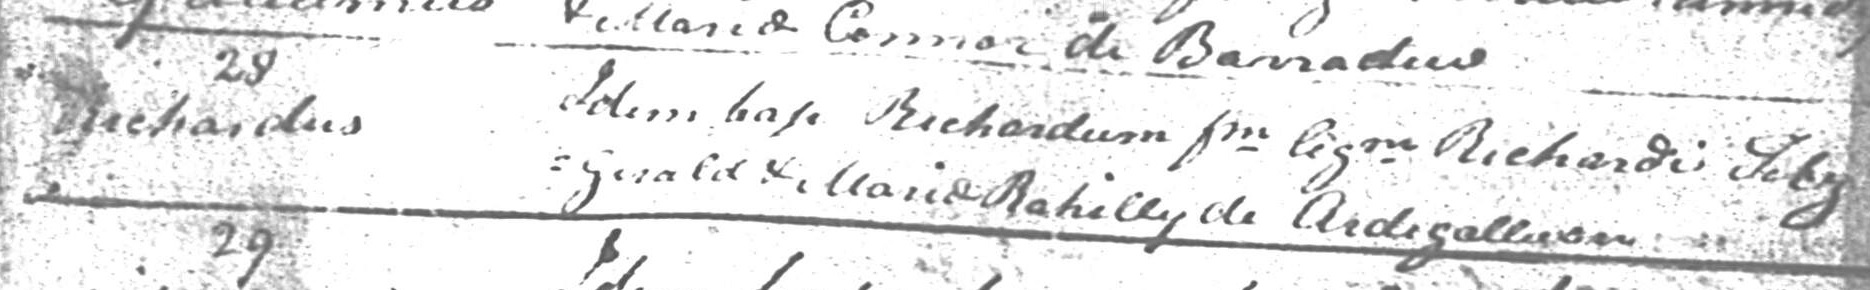 & Maria Connor de Barraduw
28
Richardus
Idem bap Richardum fm ligm Richardi Fitz
=Gerald & Maria Rahilly de Ardegalluon
29
Idem